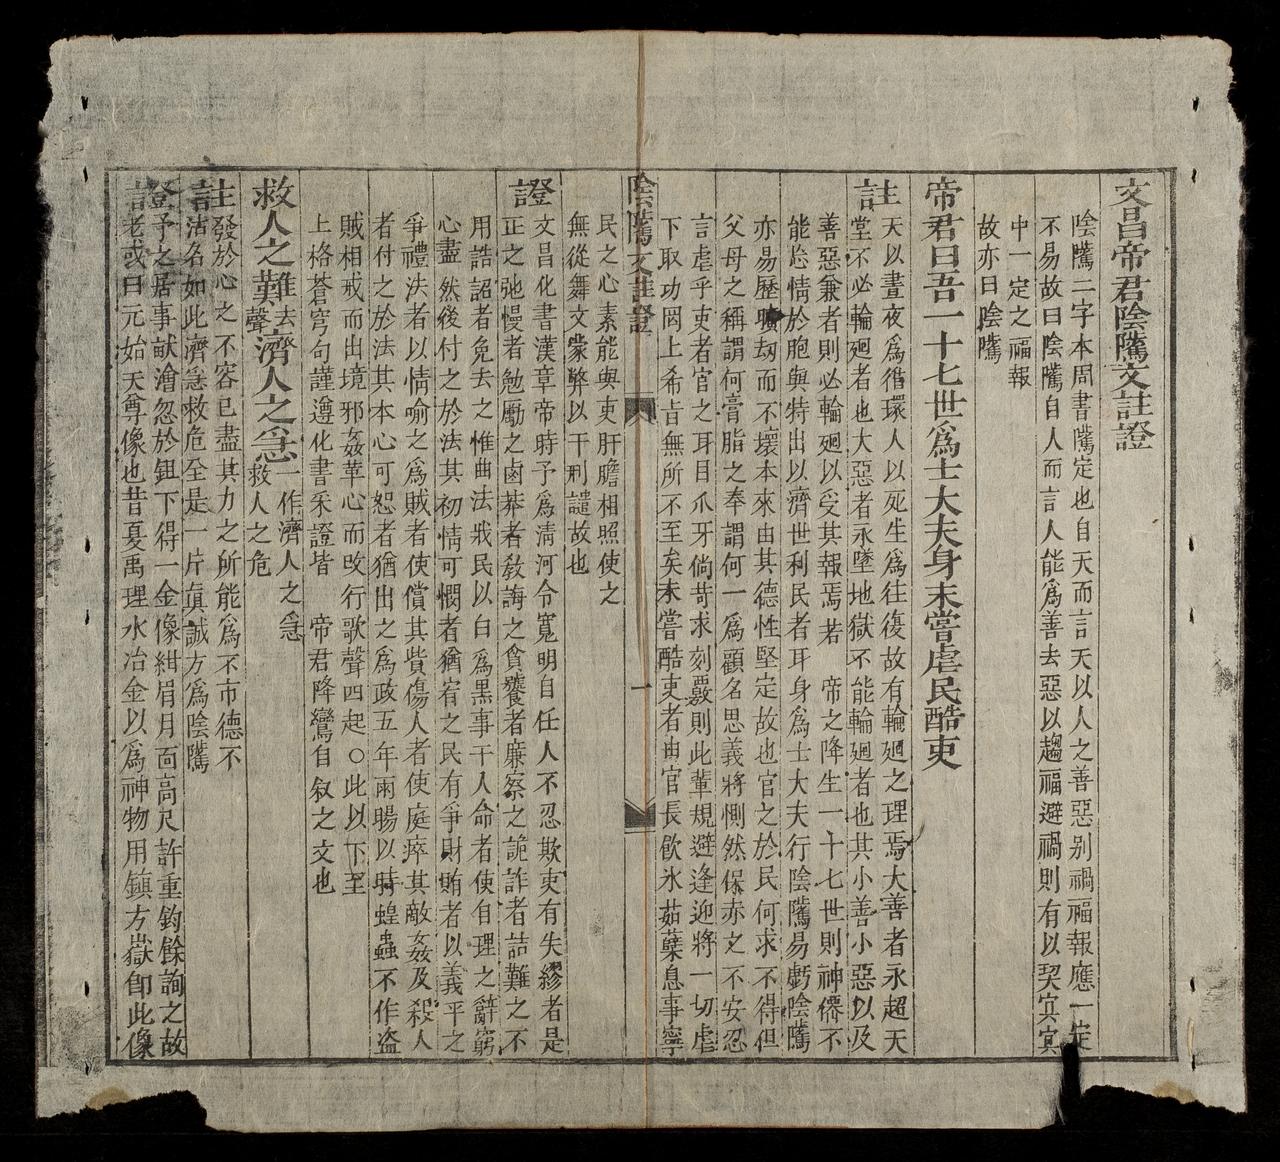 文昌帝君陰騭文註證
陰騭二字本周書騭定也自天而言天以人之善惡别禍福報應一定
不易故曰陰騭自人而言人能爲善去惡以趨福避禍則有以契㝠㝠
中一定之福報
故亦曰陰騭
帝君曰吾一十七世爲士大夫身未嘗虐民酷吏
註天以晝夜爲循環人以死生爲往復故有輪廻之理焉大善者永超天
堂不必輪廻者也大惡者永墜地獄不能輪廻者也其小善小惡以及
善惡兼者則必輪廻以受其報焉若 帝之降生一十七世則神僊不
能忘情於胞與特出以濟世利民者耳身爲士大夫行陰騭易虧陰騭
亦易歷曠刧而不壞本來由其德性堅定故也官之於民何求不得但
父母之稱謂何膏脂之奉謂何一爲顧名思義將惻然保赤之不安忍
言虐乎吏者官之耳目爪牙倘苛求刻覈則此輩規避逢迎將一切虐
下取功罔上希㫖無所不至矣未嘗酷吏者由官長飲氷茹蘖息事寧
陰騭文註證
一
民之心素能與吏肝膽相照使之
無從舞文蒙弊以干刑譴故也
證文昌化書漢章帝時予爲淸河令寬明自任人不忍欺吏有失繆者是
正之弛慢者勉勵之鹵莽者敎誨之貪饕者廉察之詭詐者詰難之不
用誥詔者免去之惟曲法戕民以白爲黒事干人命者使自理之辭窮
心盡然後付之於法其初情可憫者猶宥之民有爭財賄者以義平之
爭禮法者以情喻之爲賊者使償其貲傷人者使庭瘁其敵姦及殺人
者付之於法其本心可恕者猶出之爲政五年雨暘以時蝗蟲不作盗
賊相戒而出境邪姦革心而改行歌聲四起○此以下至
上格蒼穹句謹遵化書采證皆 帝君降鸞自叙之文也
救人之難去聲濟人之急一作濟人之急救人之危
註發於心之不容已盡其力之所能爲不市德不
沽名如此濟急救危至是一片眞誠方爲陰騭
證予之居事畎澮忽於鈕下得一金像紺眉月面高尺許重鈞餘詢之故
老或曰元始天尊像也昔夏禹理水冶金以爲神物用鎮方嶽卽此像